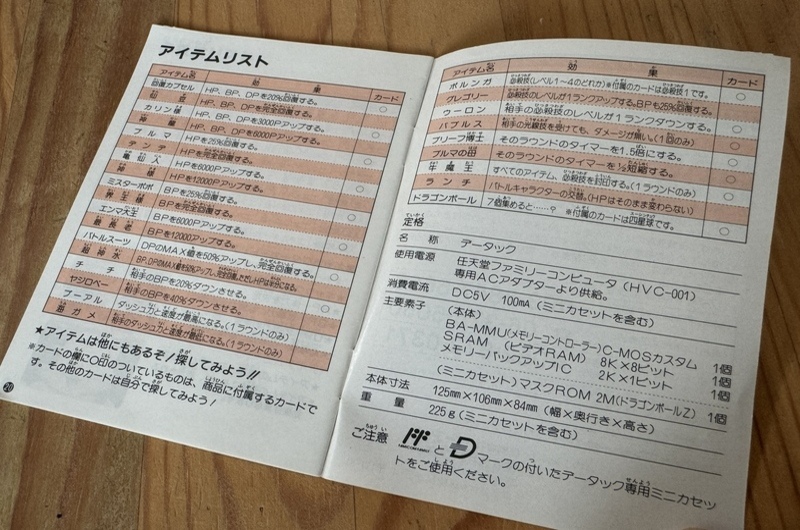 アイテムリスト
アイテム名 効果 カード
回復カプセル HP、BP、DPを20%回復する。
仙豆 HP、BP、DPを完全回復する。 ○
カリン様 HP、BP、DPを3000Pアップする。
神龍 HP、BP、DPを6000Pアップする。 ○
ブルマ HPを25%回復する。
デンデ HPを完全回復する。 ○
亀仙人 HPを6000Pアップする。
神様 HPを12000Pアップする。 ○
ミスターポポ BPを25%回復する。
界王様 BPを完全回復する。 ○
エンマ大王 BPを6000Pアップする。
最長老 BPを12000Pアップする。
バトルスーツ DPのMAX値を50%アップし、完全回復する。
超神水 ○
チチ 相手のBPを20%ダウンさせる。
ヤジロベー 相手のBPを40%ダウンさせる。 ○
プーアル ダッシュ力と速度が最高になる。(1ラウンドのみ)
亜ガメ 相手のダッシュ力と速度が最低になる。(1ラウンドのみ) ○
★アイテムは他にもあるぞ!探してみよう!!
※カードの欄に○印のついているものは、商品に付属するカードで
す。その他のカードは自分で探してみよう!
20
アイテム名 効果 カード
ポルンガ 必殺技(レベル1〜4のどれか)※付属のカードは必殺技1です。 ○
グレゴリー 必殺技のレベルが1ランクアップする。BPも25%回復する。
ウーロン 相手の必殺技のレベルが1ランクダウンする。 ○
バブルス 相手の光線技を受けても、ダメージが無い。(1回のみ) ○
ブリーフ博士 そのラウンドのタイマーを1.5倍にする。
ブルマの母 そのラウンドのタイマーを½短縮する。 ○
牛魔王 すべてのアイテム、必殺技を封印する。(1ラウンドのみ)
ランチ バトルキャラクターの交替。(HPはそのまま変わらない) ○
ドラゴンボール 7個集めると……? ※付属のカードは四星球です。 ○
定格
名称 データック
使用電源 任天堂ファミリーコンピュータ(HVC-001)
専用ACアダプターより供給。
消費電流 DC5V 100mA(ミニカセットを含む)
主要素子 (本体)
BA-MMU(メモリーコントローラー)C-MOSカスタム 1個
SRAM (ビデオRAM) 8K×8ビット 1個
メモリーバックアップIC 2K×1ビット 1個
(ミニカセット)マスクROM 2M(ドラゴンボールZ) 1個
本体寸法 125mm×106mm×84mm(幅×奥行き×高さ)
重量 225g(ミニカセットを含む)
ご注意 と マークの付いたデータック専用ミニカセッ
トをご使用ください。